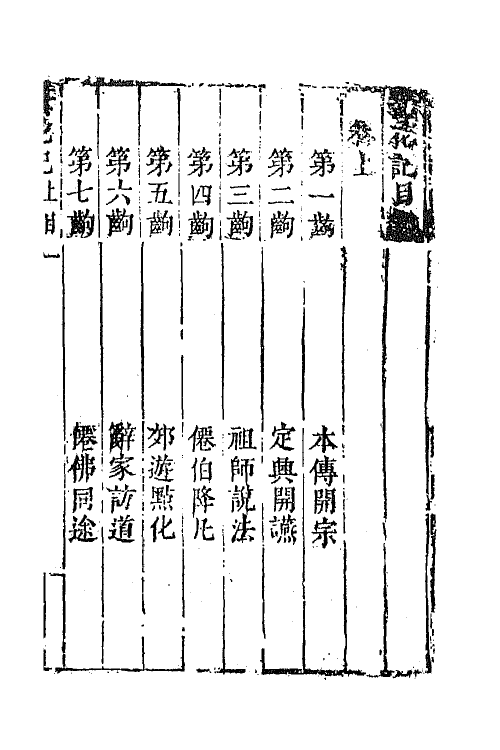 曇花記目
卷上
第一齣 本傳開宗
第二齣 定興開讌
第三齣 祖師說法
第四齣 僊伯降凡
第五齣 郊遊點化
第六齣 辭家訪道
第七齣 僊佛同途